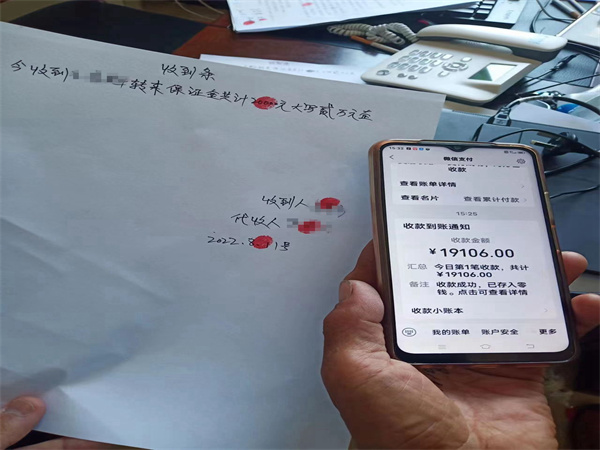 收到条
今收到
转来保证金共计20000元大写贰万元整
收到人
代收人
2022.8.11号
15:32
微信支付
收款
查看账单详情
查看名片 查看累计付款
15:25
收款到账通知
收款金额
￥19106.00
汇总 今日第1笔收款，共计
￥19106.00
备注 收款成功，已存入零
钱。点击可查看详情
收款小账本
我的账单 账户安全 更多